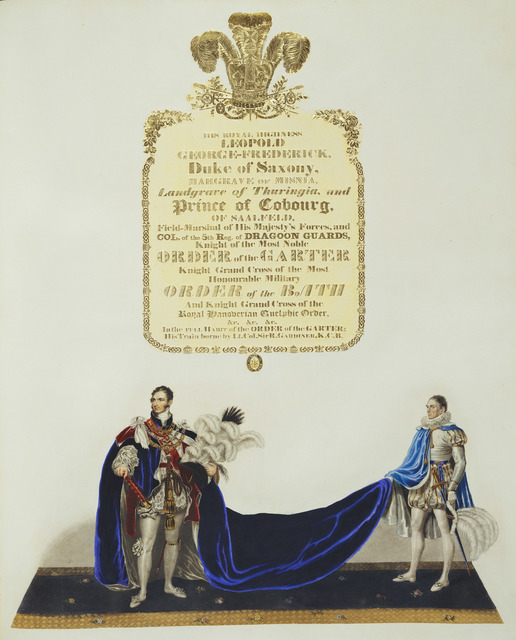 HIS ROYAL HIGHNESS
LEOPOLD
GEORGE-FREDERICK,
Duke of Saxony,
MARGRAVE OF MISNIA,
Landgrave of Thuringia, and
Prince of Cobourg,
OF SAALFELD,
Field-Marshal of His Majesty's Forces, and
COL. of the 5th Reg. of DRAGOON GUARDS,
Knight of the Most Noble
ORDER of the GARTER
Knight Grand Cross of the Most
Honourable Military
ORDER of the BATH
And Knight Grand Cross of the
Royal Hanoverian Guelphic Order,
&c. &c. &c.
In the FULL HABIT of the ORDER of the GARTER;
His Train borne by Lt. Col. Sir R. GARDINER, K.C.B.